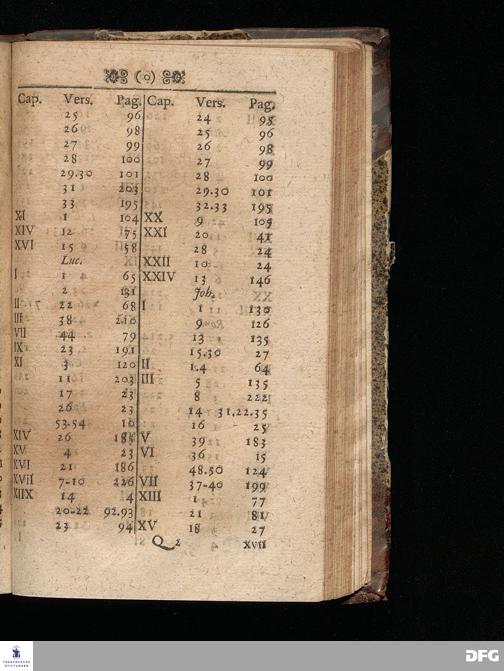 (o)
Cap. Vers. Pag. Cap. Vers. Pag.
25 96 24 95
26 98 25 96
27 99 26 98
28 100 27 99
29.30 101 28 100
31 203 29.30 101
33 195 32.33 195
XI 1 104 XX 9 105
XIV 12 75 XXI 20 41
XVI 15 58 28 24
Luc. XXII 10 24
I 1 65 XXIV 13 146
2 131 Joh.
II 22 68 I 1 130
III 38 210 9 126
VII 44 79 13 135
IX 23 191 15.30 27
XI 3 120 II 1.4 64
11 203 III 5 135
17 23 8 222
26 23 14 31,22,35
53.54 10 16 25
XIV 26 V 39 183
XV 4 23 VI 36 15
XVI 21 186 48.50 124
XVII 7-10 226 VII 37-40 199
XIIX 14 4 XIII 1 77
20-22 92.93 21 81
23 94 XV 18 27
Q 2 XVII
FRANCKESCHE STIFTUNGEN
DFG